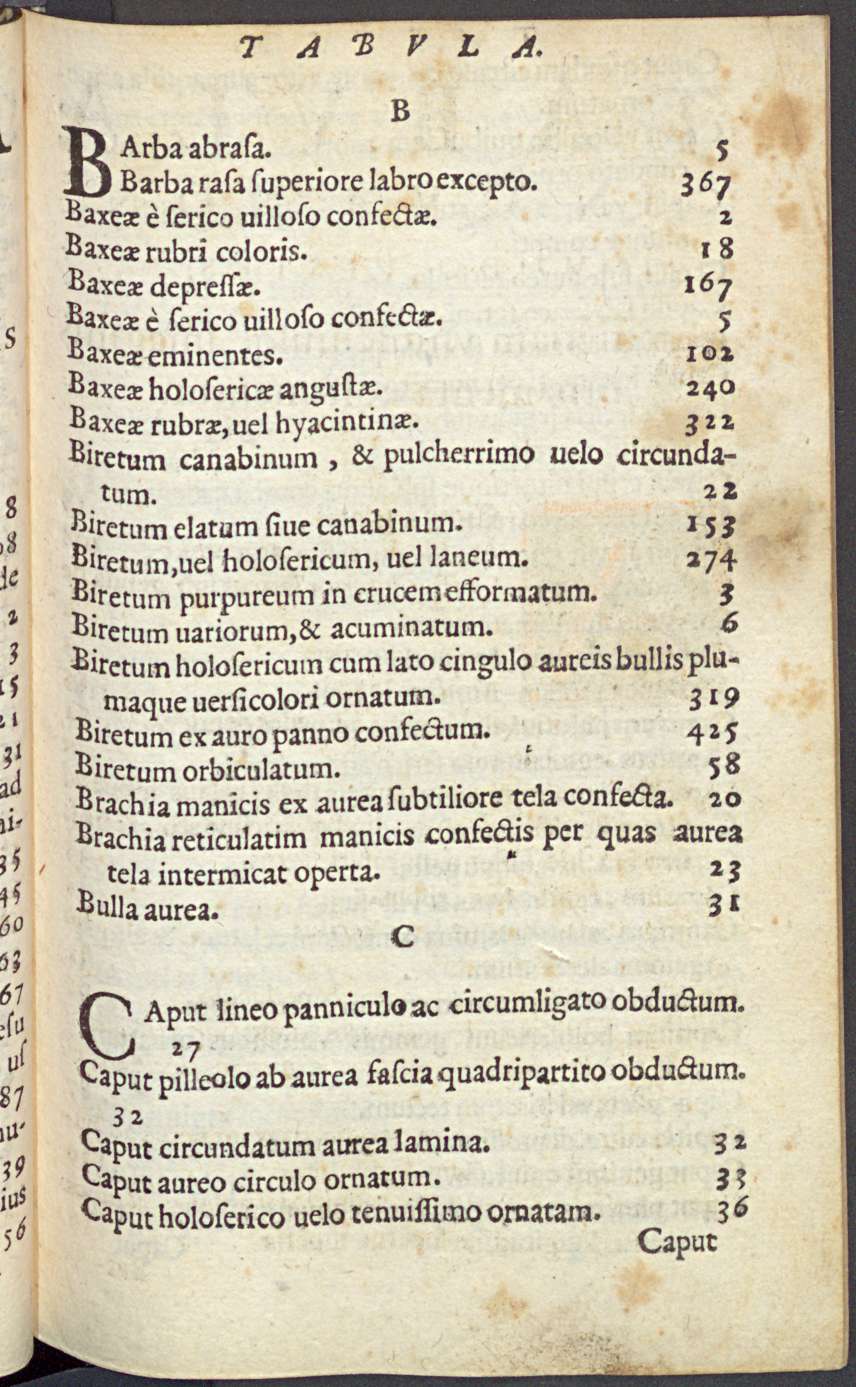 TABVLA.
B
BArba abraſa. 5
Barba raſa ſuperiore labro excepto. 367
Baxeæ è ſerico uilloſo confectæ. 2
Baxeæ rubri coloris. 18
Baxeæ depreſſæ. 167
Baxeæ è ſerico uilloſo confectæ. 5
Baxeæ eminentes. 102
Baxeæ holoſericæ anguſtæ. 240
Baxeæ rubræ, uel hyacintinæ. 322
Biretum canabinum , & pulcherrimo uelo circunda-
tum. 22
Biretum elatum ſiue canabinum. 153
Biretum, uel holoſericum, uel laneum. 274
Biretum purpureum in crucem efformatum. 3
Biretum uariorum, & acuminatum. 6
Biretum holoſericum cum lato cingulo aureis bullis plu-
maque uerſicolori ornatum. 319
Biretum ex auro panno confectum. 425
Biretum orbiculatum. 58
Brachia manicis ex aurea ſubtiliore tela confecta. 20
Brachia reticulatim manicis confectis per quas aurea
tela intermicat operta. 23
Bulla aurea. 31
C
CAput lineo panniculo ac circumligato obductum.
27
Caput pilleolo ab aurea faſcia quadripartito obductum.
32
Caput circundatum aurea lamina. 32
Caput aureo circulo ornatum. 33
Caput holoſerico uelo tenuiſſimo ornatam. 36
Caput